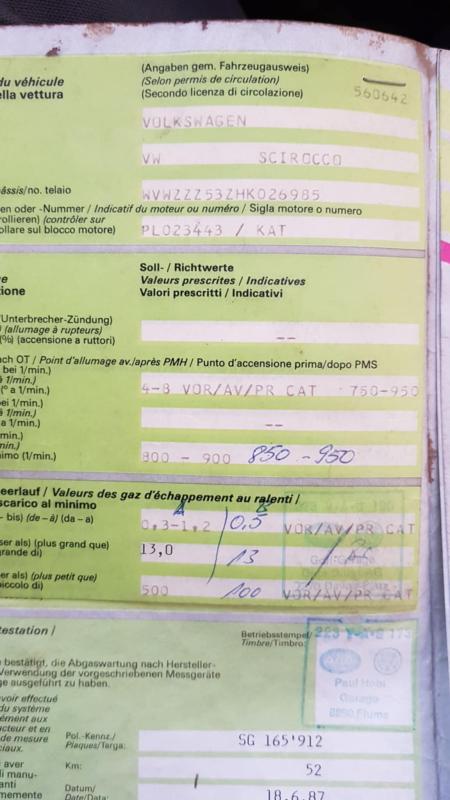 du véhicule
ella vettura
(Angaben gem. Fahrzeugausweis)
(Selon permis de circulation)
(Secondo licenza di circolazione)
560642
VOLKSWAGEN
VW SCIROCCO
hâssis/no. telaio
WVWZZZ53ZHK026985
en oder -Nummer / Indicatif du moteur ou numéro / Sigla motore o numero
rollieren) (contrôler sur
ollare sul blocco motore)
PL023443 / KAT
Soll- / Richtwerte
Valeurs prescrites / Indicatives
Valori prescritti / Indicativi
e
zione
Unterbrecher-Zündung)
(allumage à rupteurs)
(%) (accensione a ruttori)
--
ach OT / Point d'allumage av./après PMH / Punto d'accensione prima/dopo PMS
bei 1/min.)
à 1/min.)
(° a 1/min.)
4-8 VOR/AV/PR CAT 750-950
bei 1/min.)
à 1/min.)
a 1/min.)
--
min.)
min.)
nimo (1/min.)
800 - 900 850 - 950
eerlauf / Valeurs des gaz d'échappement au ralenti /
scarico al minimo
- bis) (de – à) (da – a)
A B
0,3-1,2 0,5 VOR/AV/PR CAT
ser als) (plus grand que)
grande di)
13,0 13
ser als) (plus petit que)
piccolo di)
500 100 VOR/AV/PR CAT
testation /
Betriebsstempel/
Timbre/Timbro:
Paul Hobi
Garage
8890 Flums
bestätigt, die Abgaswartung nach Hersteller-
Verwendung der vorgeschriebenen Messgeräte
ge ausgeführt zu haben.
voir effectué
du système
ément aux
cteur et en
de mesure
ciaux.
Pol.-Kennz./
Plaques/Targa:
SG 165'912
aver
di manu-
anti
memente
Km:
52
Datum/
Date/Data:
18.6.87